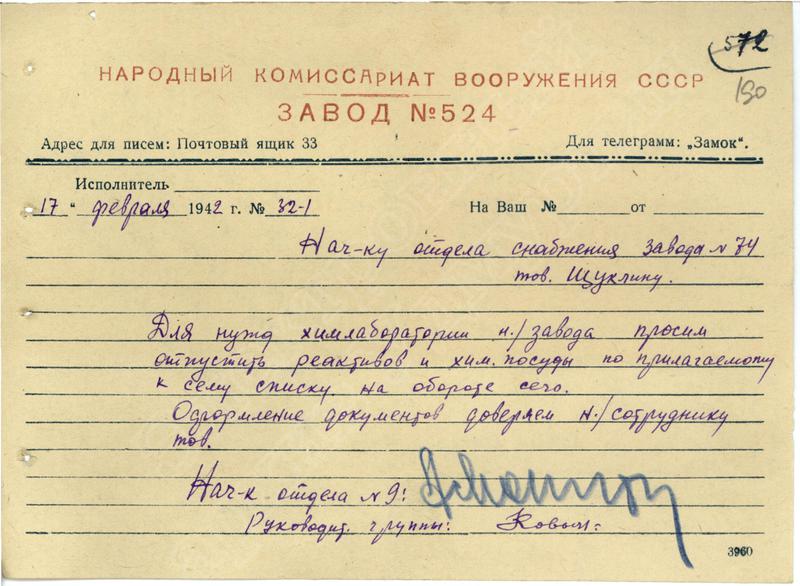 572
190
НАРОДНЫЙ КОМИССАРИАТ ВООРУЖЕНИЯ СССР
ЗАВОД №524
Адрес для писем: Почтовый ящик 33 Для телеграмм: „Замок“.
Исполнитель
17 " февраля 1942 г. № 32-1 На Ваш № от
Нач-ку отдела снабжения завода № 74
тов. Щуклину.
Для нужд химлаборатории н./завода просим
отпустить реактивов и хим. посуды по прилагаемому
к сему списку. на обороте сего.
Оформление документов доверяем н./сотруднику
тов.
Нач-к отдела №9:
Руководит. группы:
3960